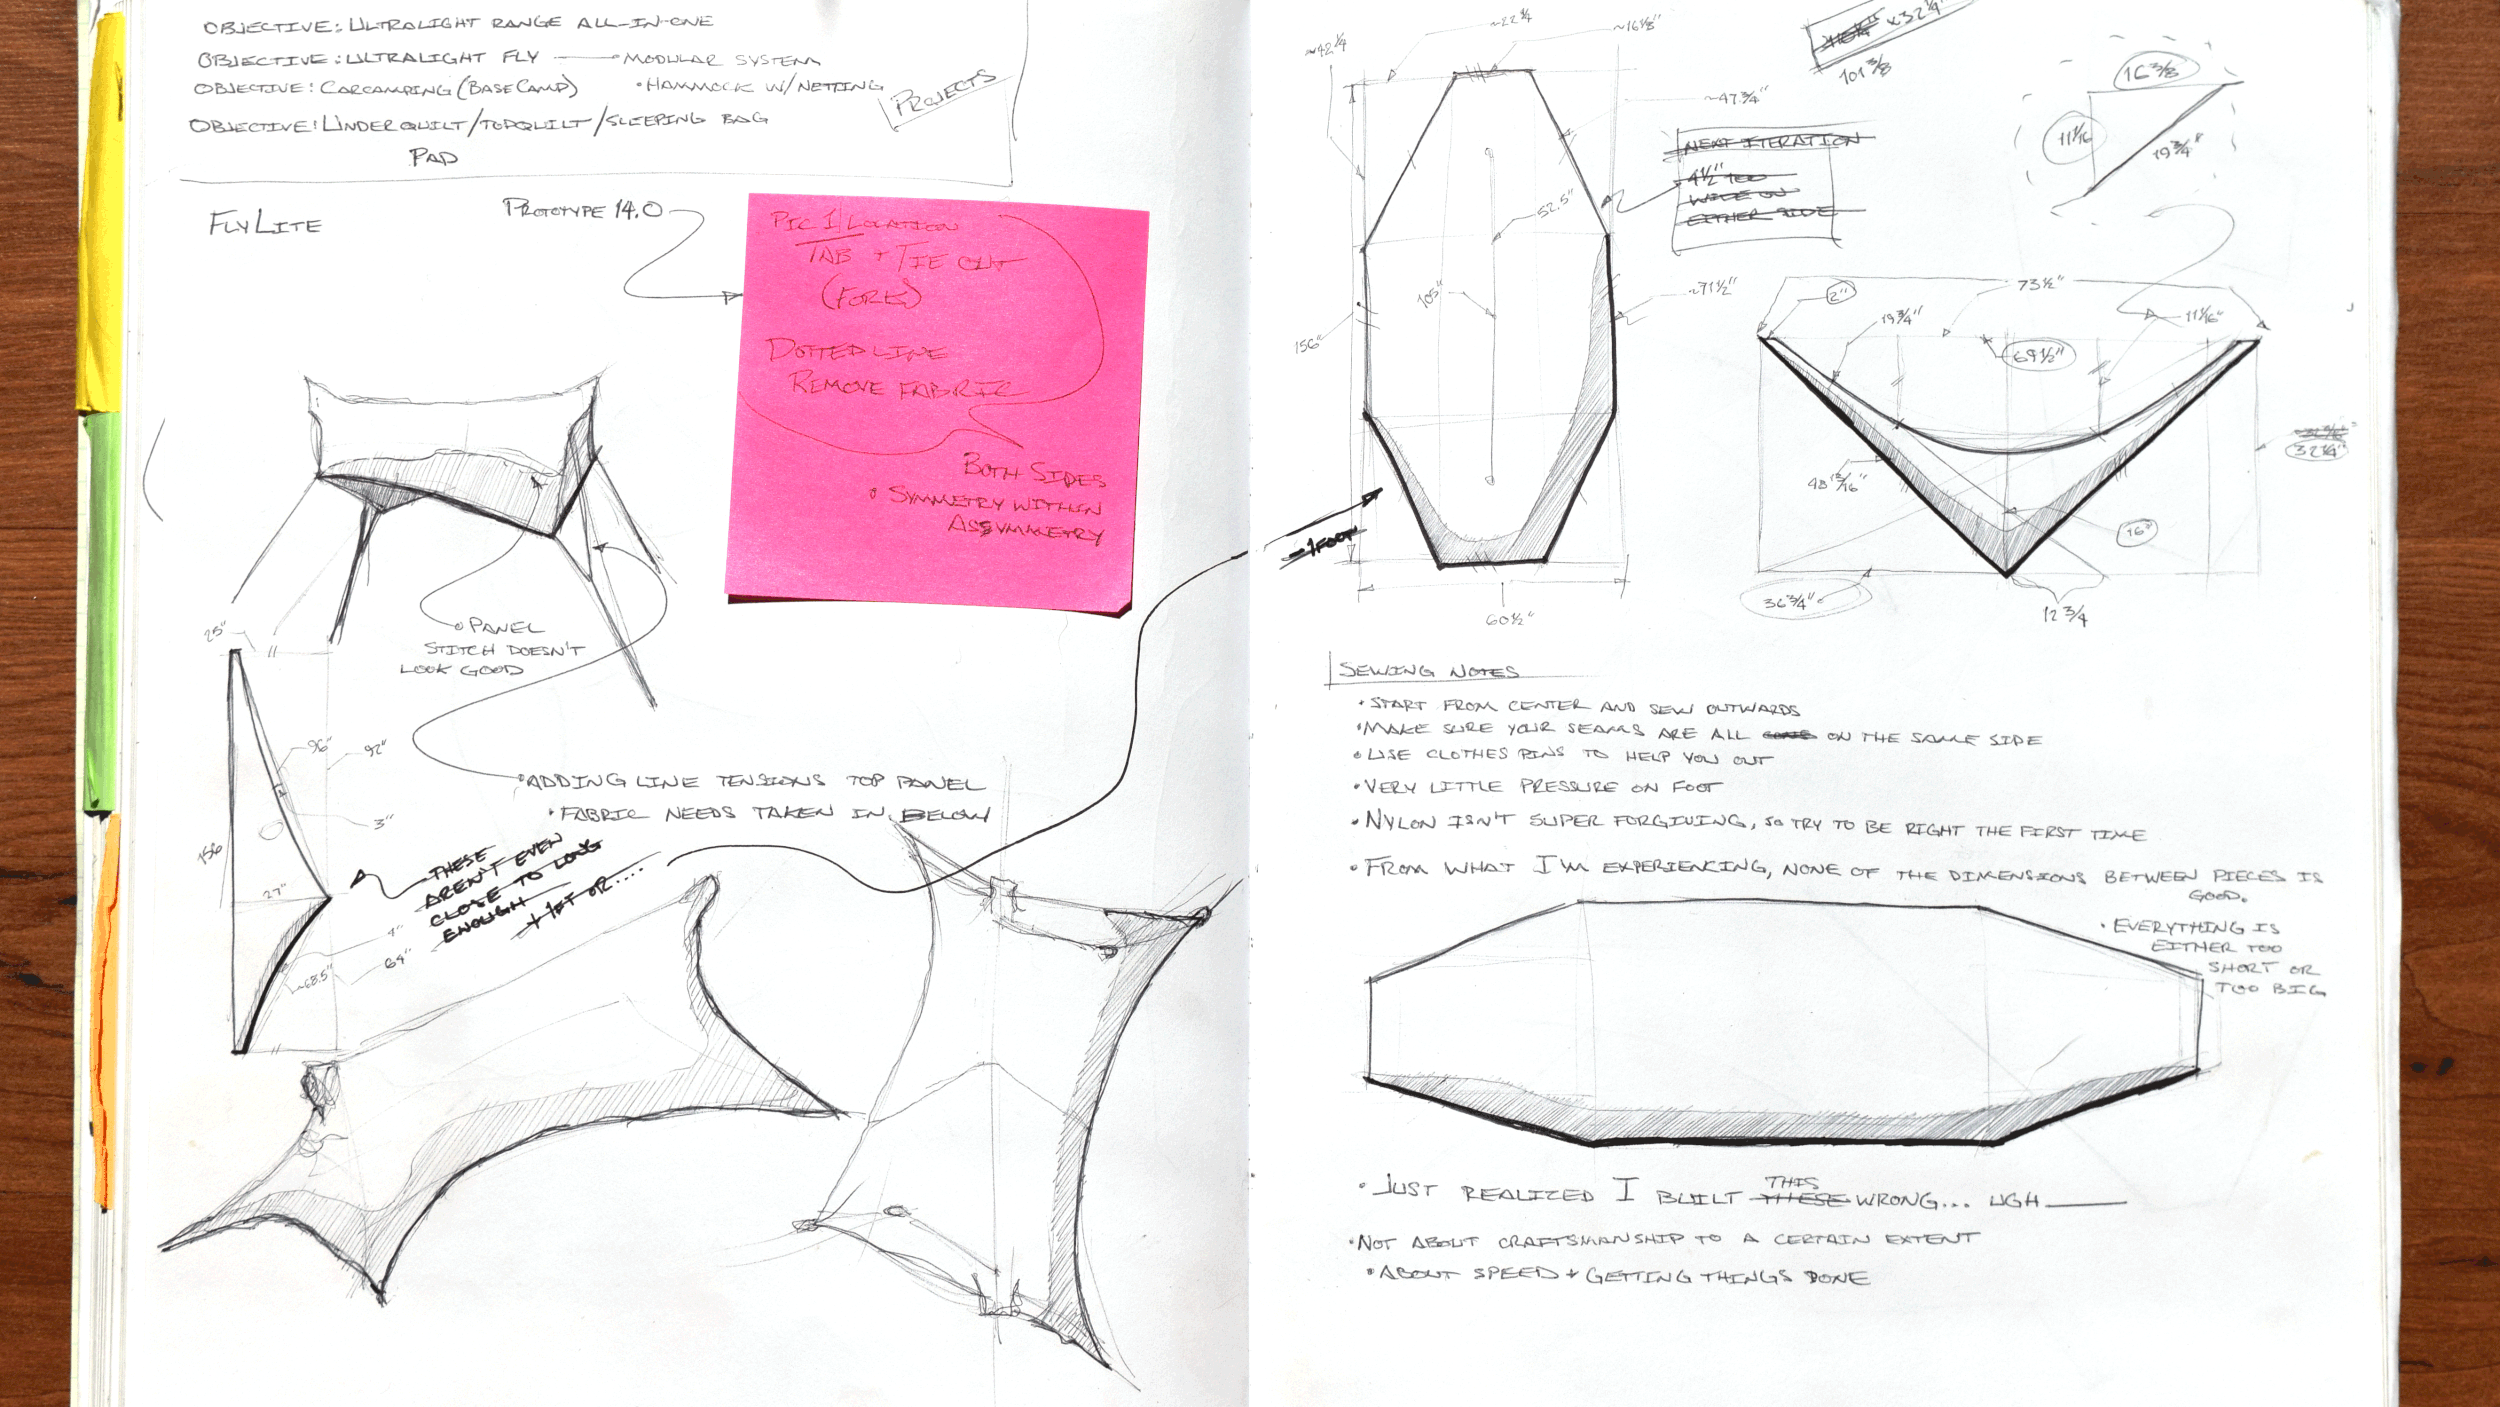 OBJECTIVE: ULTRALIGHT RANGE ALL-IN-ONE
OBJECTIVE: ULTRALIGHT FLY
• MODULAR SYSTEM
OBJECTIVE: CARCAMPING (BASECAMP)
• HAMMOCK W/ NETTING
OBJECTIVE: UNDERQUILT/TOPQUILT/SLEEPING BAG
PAD
PROJECTS
FLYLITE
PROTOTYPE 14.0
PIC 1/LOCATION
TAB + TIE OUT
(FORK)
DOTTED LINE
REMOVE FABRIC
BOTH SIDES
• SYMMETRY WITHIN
ASSYMMETRY
• PANEL
STITCH DOESN'T
LOOK GOOD
25"
96"
92"
3"
156
27"
4"
64"
~68.5"
• ADDING LINE TENSIONS TOP PANEL
• FABRIC NEEDS TAKEN IN BELOW
THESE
AREN'T EVEN
CLOSE TO LONG
ENOUGH
+ 1FT OR....
~22 1/4
~16 1/8"
~42 1/4
~47 3/4"
NEXT ITERATION
4 1/2" TOO
WIDE ON
EITHER SIDE
52.5"
105"
156"
~71 1/2"
~1 FOOT
60 1/2"
x 32 1/4"
101 3/8
16 3/8
11 1/16
19 3/4"
73 1/2"
2"
19 3/4"
11 1/16"
69 1/2"
32 1/4"
48 13/16"
16"
36 3/4"
12 3/4
SEWING NOTES
• START FROM CENTER AND SEW OUTWARDS
• MAKE SURE YOUR SEAMS ARE ALL ON THE SAME SIDE
• USE CLOTHES PINS TO HELP YOU OUT
• VERY LITTLE PRESSURE ON FOOT
• NYLON ISN'T SUPER FORGIVING, SO TRY TO BE RIGHT THE FIRST TIME
• FROM WHAT I'M EXPERIENCING, NONE OF THE DIMENSIONS BETWEEN PIECES IS
GOOD.
• EVERYTHING IS
EITHER TOO
SHORT OR
TOO BIG
• JUST REALIZED I BUILT THESE THIS WRONG... UGH
• NOT ABOUT CRAFTSMANSHIP TO A CERTAIN EXTENT
• ABOUT SPEED + GETTING THINGS DONE